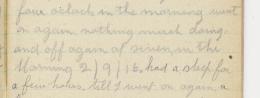 four o'clock in the morning went
on again nothing much doing
and off again at seven, in the
Morning 2/9/16. had a sleep for
a few hours, till I went on again, a